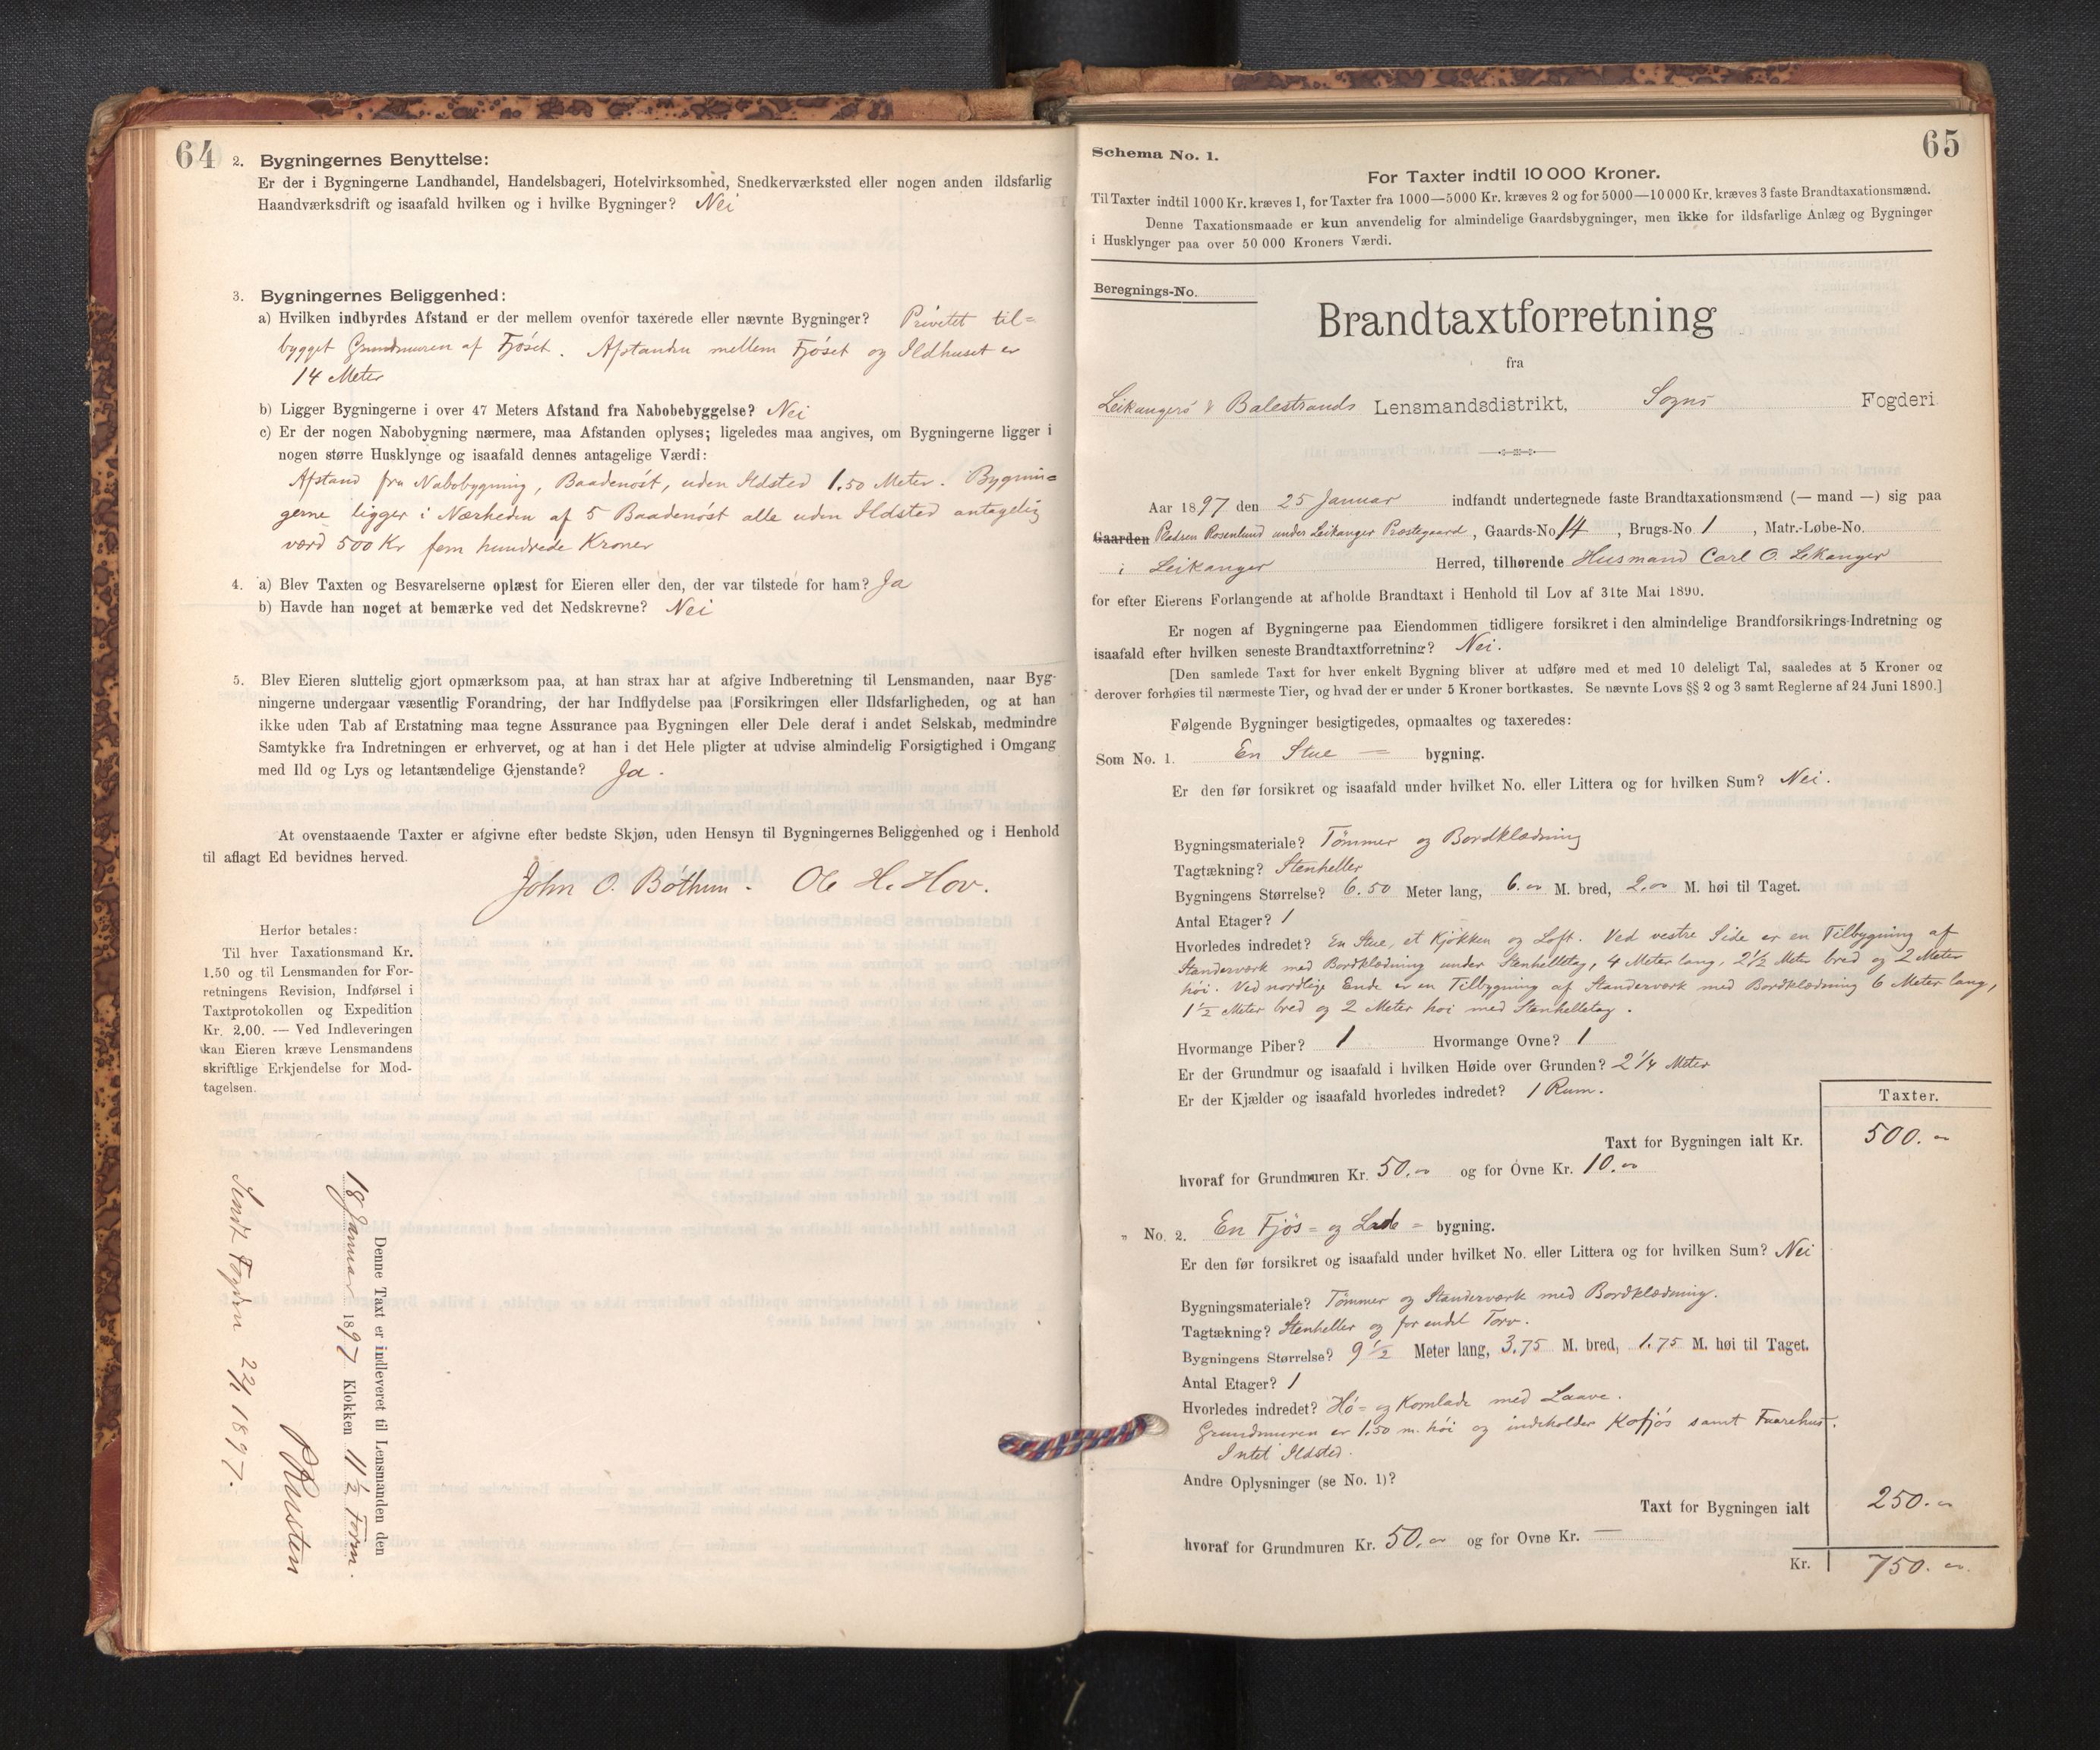 64
2. Bygningernes Benyttelse:
Er der i Bygningerne Landhandel, Handelsbageri, Hotelvirksomhed, Snedkerværksted eller nogen anden ildsfarlig
Haandværksdrift og isaafald hvilken og i hvilke Bygninger? Nei
3. Bygningernes Beliggenhed:
a) Hvilken indbyrdes Afstand er der mellem ovenfor taxerede eller nævnte Bygninger? Privetet til=
bygget Grundmuren af Fjöset. Afstanden mellem Fjöset og Ildhuset er
14 Meter
b) Ligger Bygningerne i over 47 Meters Afstand fra Nabobebyggelse? Nei
c) Er der nogen Nabobygning nærmere, maa Afstanden oplyses; ligeledes maa angives, om Bygningerne ligger i
nogen større Husklynge og isaafald dennes antagelige Værdi:
Afstand fra Nabobygning, Baadenöst, uden Ildsted 1.50 Meter. Bygnin=
gerne ligger i Nærheden af 5 Baadenöst alle uden Ildsted antagelig
værd 500 Kr fem hundrede Kroner
4. a) Blev Taxten og Besvarelserne oplæst for Eieren eller den, der var tilstede for ham? Ja
b) Havde han noget at bemærke ved det Nedskrevne? Nei
5. Blev Eieren sluttelig gjort opmærksom paa, at han strax har at afgive Indberetning til Lensmanden, naar Byg-
ningerne undergaar væsentlig Forandring, der har Indflydelse paa Forsikringen eller Ildsfarligheden, og at han
ikke uden Tab af Erstatning maa tegne Assurance paa Bygningen eller Dele deraf i andet Selskab, medmindre
Samtykke fra Indretningen er erhvervet, og at han i det Hele pligter at udvise almindelig Forsigtighed i Omgang
med Ild og Lys og letantændelige Gjenstande? Ja.
At ovenstaaende Taxter er afgivne efter bedste Skjøn, uden Hensyn til Bygningernes Beliggenhed og i Henhold
til aflagt Ed bevidnes herved.
John O. Böthun. Ole H. Hov.
Herfor betales:
Til hver Taxationsmand Kr.
1.50 og til Lensmanden for For-
retningens Revision, Indførsel i
Taxtprotokollen og Expedition
Kr. 2,00. — Ved Indleveringen
kan Eieren kræve Lensmandens
skriftlige Erkjendelse for Mod-
tagelsen.
Denne Taxt er indleveret til Lensmanden den
18 Januar 1897 Klokken 11 ½ Form.
Rusten
Sendt Fogden 22/1 1897.
65
Schema No. 1.
For Taxter indtil 10 000 Kroner.
Til Taxter indtil 1000 Kr. kræves 1, for Taxter fra 1000—5000 Kr. kræves 2 og for 5000—10 000 Kr. kræves 3 faste Brandtaxationsmænd.
Denne Taxationsmaade er kun anvendelig for almindelige Gaardsbygninger, men ikke for ildsfarlige Anlæg og Bygninger
i Husklynger paa over 50 000 Kroners Værdi.
Beregnings-No.
Brandtaxtforretning
fra
Leikangers & Balestrands Lensmandsdistrikt, Sogns Fogderi
Aar 1897 den 25 Januar indfandt undertegnede faste Brandtaxationsmænd (— mand —) sig paa
Gaarden Pladsen Rosenlund under Leikanger Præstegaard, Gaards-No 14, Brugs-No 1, Matr.-Løbe-No.
i Leikanger Herred, tilhørende Husmand Carl O. Lekanger
for efter Eierens Forlangende at afholde Brandtaxt i Henhold til Lov af 31te Mai 1890.
Er nogen af Bygningerne paa Eiendommen tidligere forsikret i den almindelige Brandforsikrings-Indretning og
isaafald efter hvilken seneste Brandtaxtforretning? Nei.
[Den samlede Taxt for hver enkelt Bygning bliver at udføre med et med 10 deleligt Tal, saaledes at 5 Kroner og
derover forhøies til nærmeste Tier, og hvad der er under 5 Kroner bortkastes. Se nævnte Lovs §§ 2 og 3 samt Reglerne af 24 Juni 1890.]
Følgende Bygninger besigtigedes, opmaaltes og taxeredes:
Som No. 1. En Stue = bygning.
Er den før forsikret og isaafald under hvilket No. eller Littera og for hvilken Sum? Nei.
Bygningsmateriale? Tömmer og Bordklædning
Tagtækning? Stenheller
Bygningens Størrelse? 6.50 Meter lang, 6.00 M. bred, 2.00 M. høi til Taget.
Antal Etager? 1
Hvorledes indredet? En Stue, et Kjökken og Loft. Ved vestre Side er en Tilbygning af
Standerværk med Bordklædning under Stenhelletag, 4 Meter lang, 2½ Meter bred og 2 Meter
höi. Ved nordlige Ende er en Tilbygning af Standerværk med Bordklædning 6 Meter lang,
1½ Meter bred og 2 Meter höi med Stenhelletag.
Hvormange Piber? 1 Hvormange Ovne? 1
Er der Grundmur og isaafald i hvilken Høide over Grunden? 2¼ Meter
Er der Kjælder og isaafald hvorledes indredet? 1 Rum.
Taxter.
Taxt for Bygningen ialt Kr. 500.00
hvoraf for Grundmuren Kr. 50.00 og for Ovne Kr. 10.00
" No. 2. En Fjös= og Lade= bygning.
Er den før forsikret og isaafald under hvilket No. eller Littera og for hvilken Sum? Nei
Bygningsmateriale? Tömmer og Standerværk med Bordklædning.
Tagtækning? Stenheller og for endel Torv.
Bygningens Størrelse? 9½ Meter lang, 3.75 M. bred, 1.75 M. høi til Taget.
Antal Etager? 1
Hvorledes indredet? Hö= og Kornlade med Laave.
Grundmuren er 1.50 m. höi og indeholder Kofjös samt Faarehus.
Intet Ildsted.
Andre Oplysninger (se No. 1)?
Taxt for Bygningen ialt 250.00
hvoraf for Grundmuren Kr. 50.00 og for Ovne Kr. —
Kr. 750.00